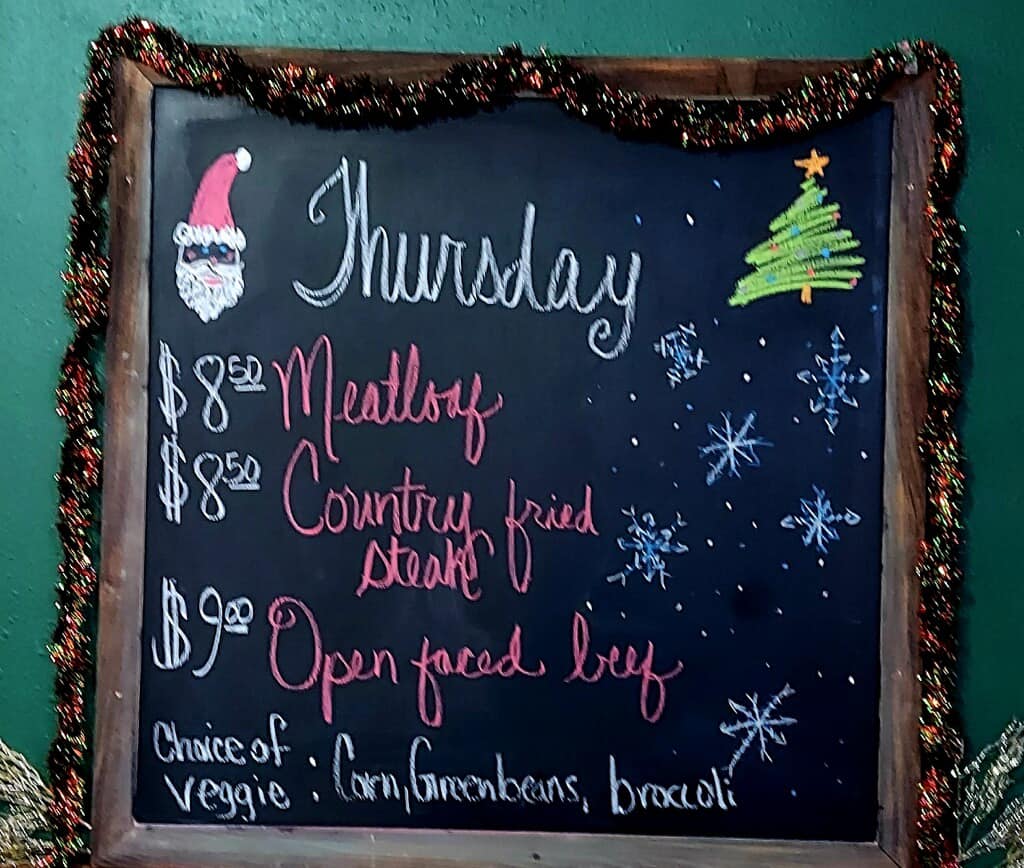 Thursday
$8.50 Meatloaf
$8.50 Country fried
steak
$9.00 Open faced beef
Choice of
veggie : Corn, Greenbeans, broccoli